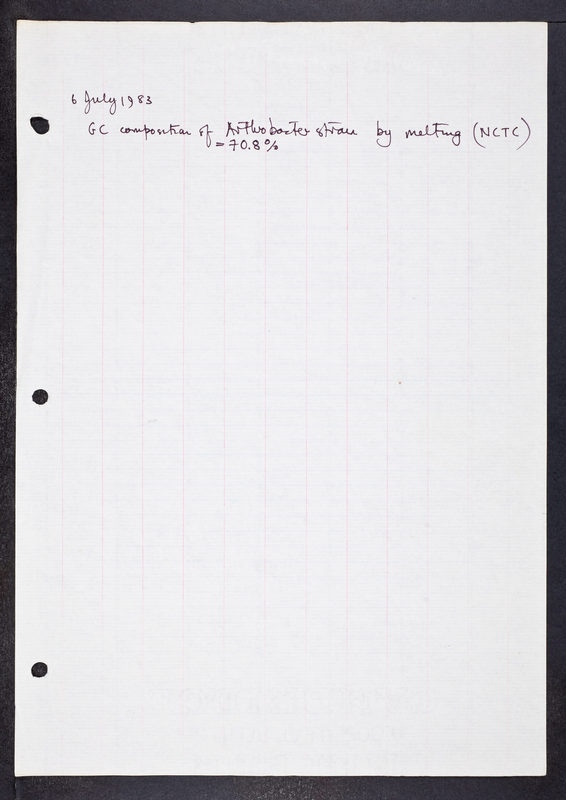 6 July 1983
GC composition of Arthrobacter strain by melting (NCTC)
= 70.8%